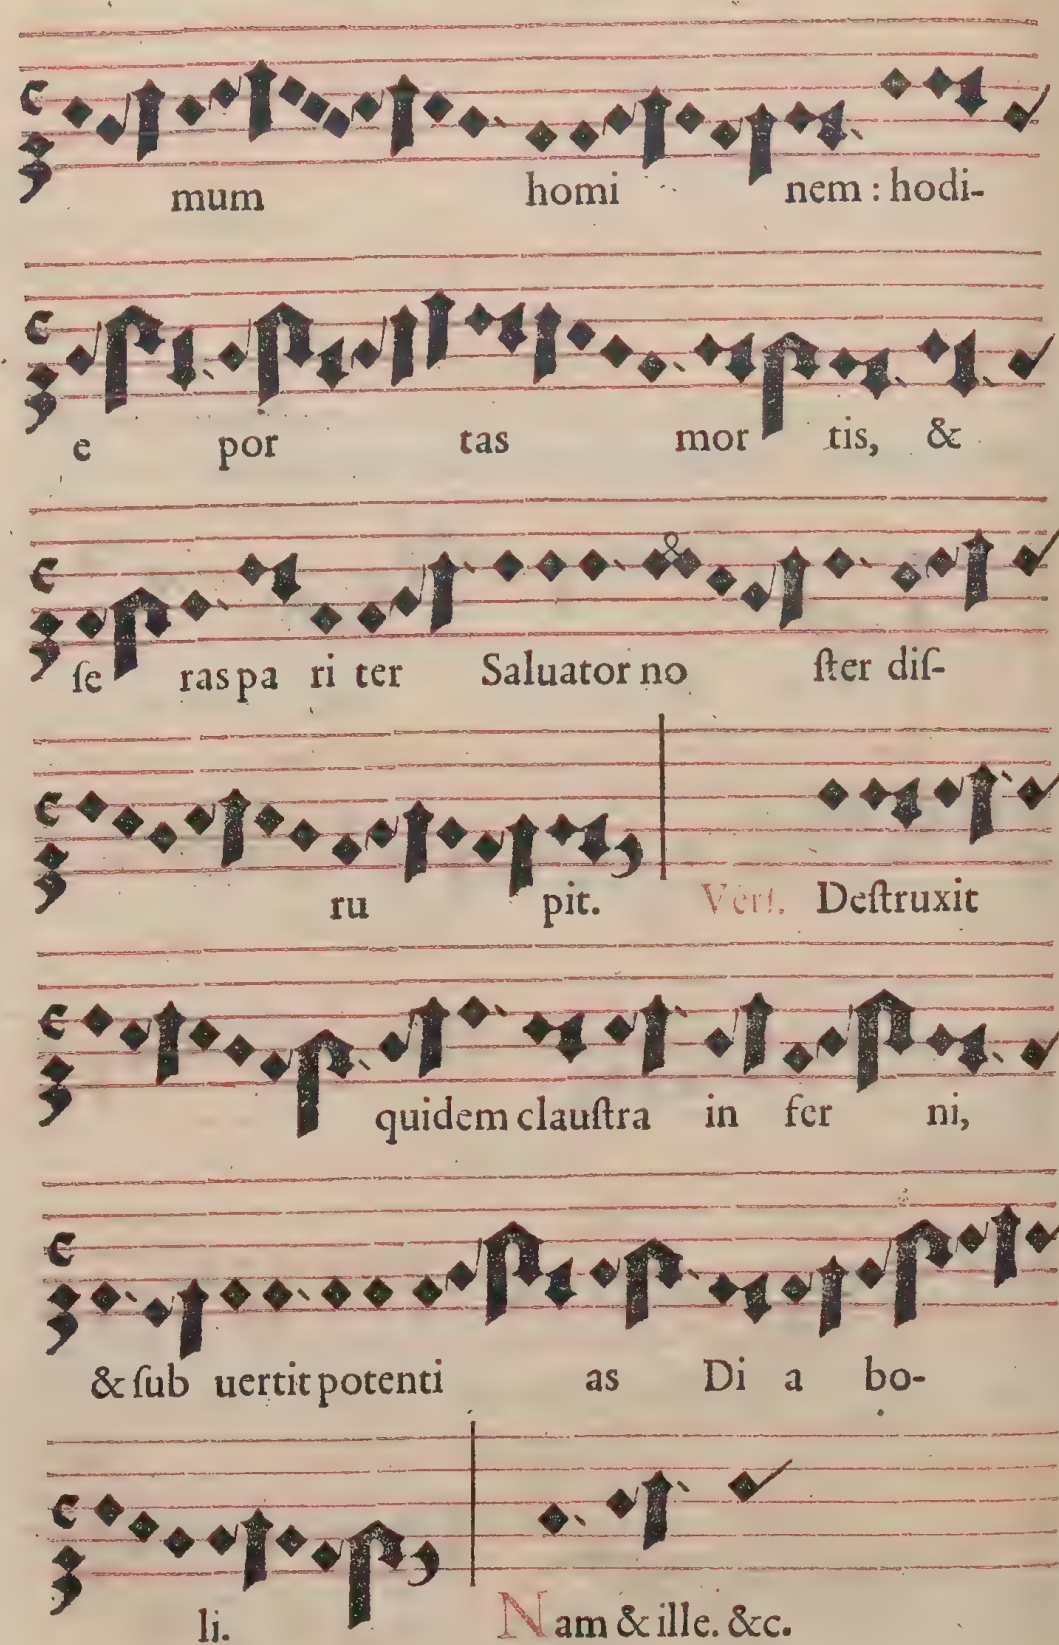 mum homi nem : hodi-
e por tas mor tis, &
ſe ras pa ri ter Saluator no ſter diſ-
ru pit. Verſ. Deſtruxit
quidem clauſtra in fer ni,
& ſub uertit potenti as Di a bo-
li. Nam & ille. &c.